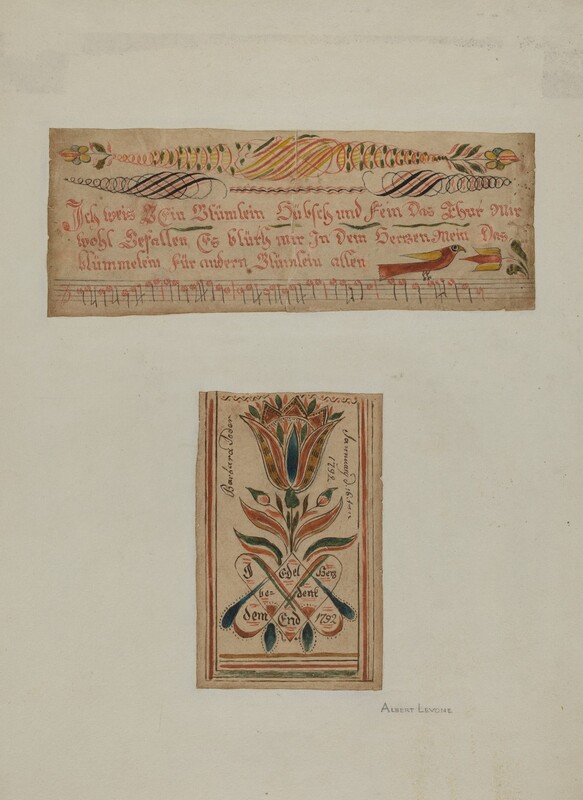 Ich weis Ein Blümlein Hübsch und Fein Das Thut Mir
wohl Gefallen Es blüth mir In Dem Hertzen Mein Das
blümmelein für andern Blümlein allen
Barbara Joder
January D. 16ten
1792
J Edel Herz
be- denk
dem End 1792
Albert Levone